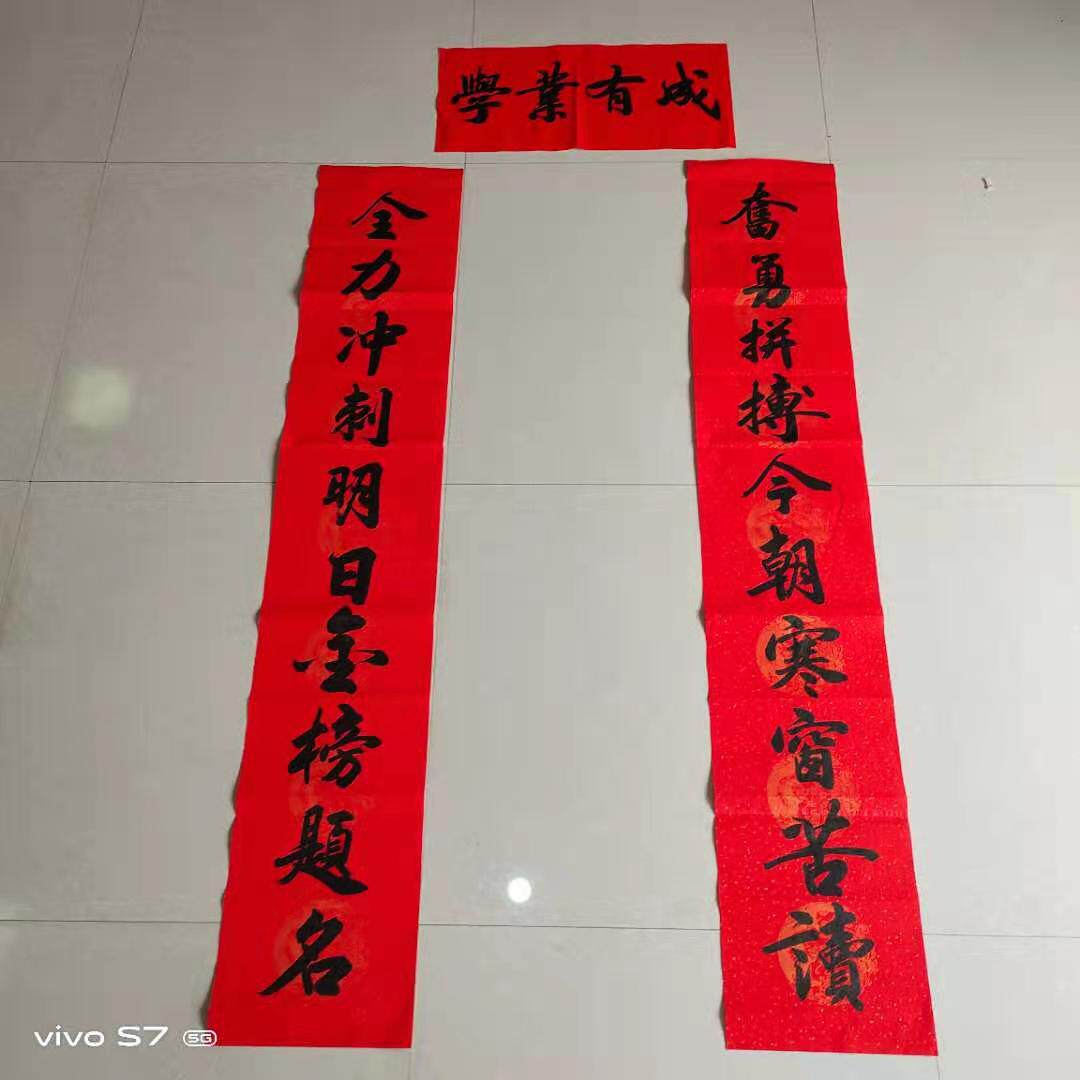 學業有成
奮勇拼搏今朝寒窗苦讀
全力冲刺明日金榜題名
vivo S7 5G